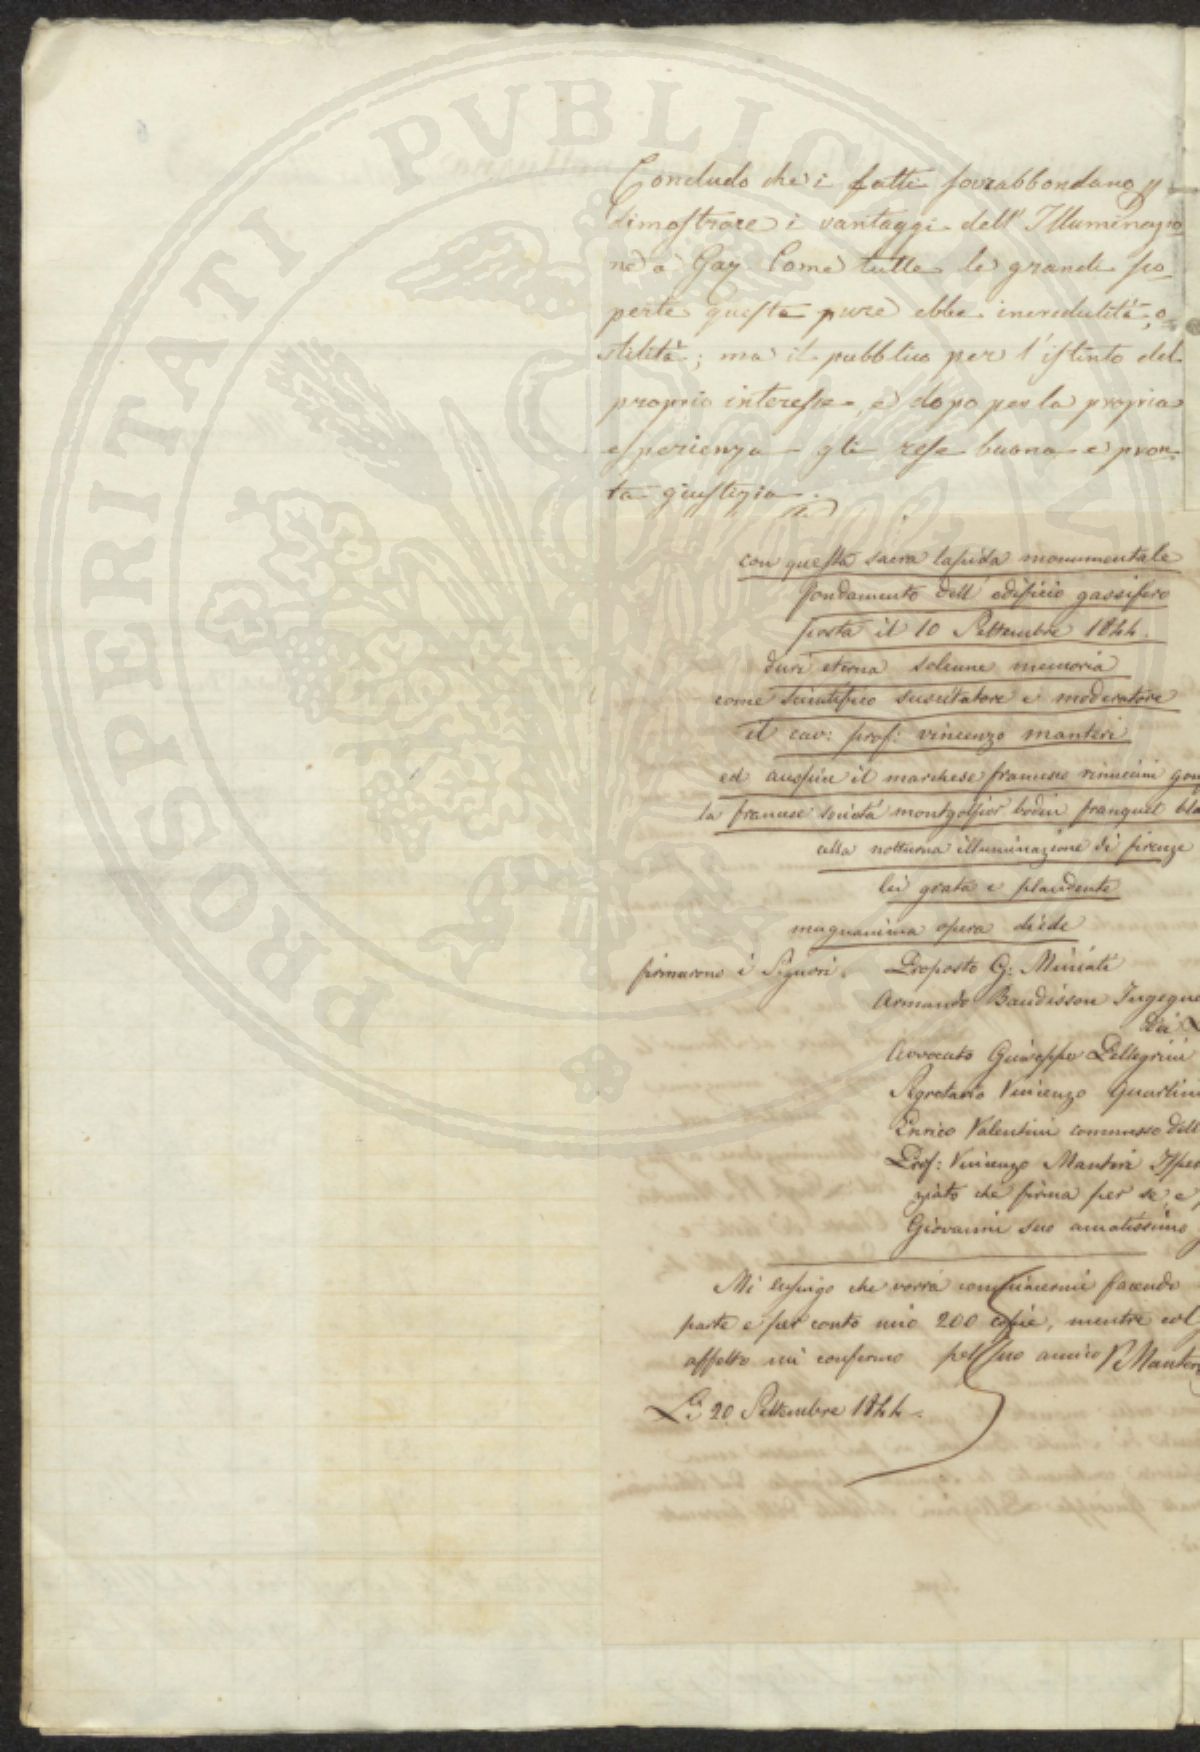 Concludo che i fatti sovrabbondano p
dimostrare i vantaggi dell' Illuminazio
ne a Gaz. Come tutte le grandi sco
perte questa pure ebbe incredulità, o
stilità; ma il pubblico per l'istinto del
proprio interesse, e dopo per la propria
esperienza gli rese buona e pron
ta giustizia.
con questa sacra lapida monumentale
fondamento dell' edificio gassifero
posta il 10 Settembre 1844.
duri eterna solenne memoria
come scientifico suscitatore e moderatore
il cav: prof: vincenzo manteri
ed auspice il marchese francesco rinuccini gon
la francese società montgolfier bodin franquet bla
alla notturna illuminazione di firenze
lei grata e plaudente
magnanima opera diede
firmarono i Signori. Proposto G: Miniati
Armando Baudisson Ingegne
Avvocato Giuseppe Pellegrini
Segretario Vincenzo Quartin
Enrico Valentini commesso dell
Prof: Vincenzo Manteri
ziato che firma per se, e
Giovanni suo amatissimo
Mi lusingo che vorrà compiacermi facendo
parte e per conto mio 200 copie, mentre col
affetto mi confermo pel suo amico V. Manteri
Li 20 Settembre 1844.
PROSPERITATI PVBLICAE